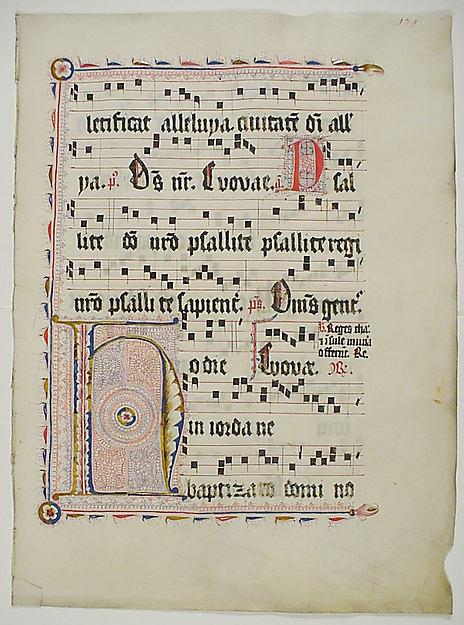 letificat alleluya. ciuitatē dī all
ya. p̄. Ds̄ nr̄. Euouae. a. P sal
lite dō nrō psallite psallite regi
nrō psallite sapient̄. ps. Om̄s gent̄.
H odie Euouae.
℣. Reges thar
⁊ ĩsule muna
offerēt. Re.
in iorda ne
baptiza to domi no